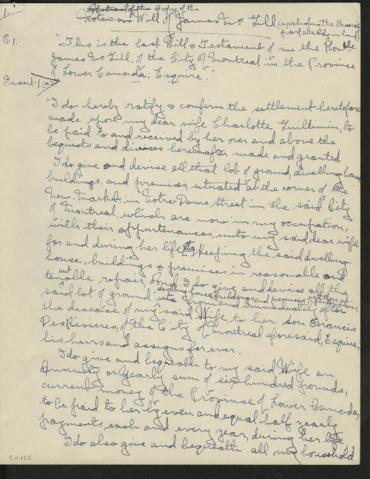 Copy of the
Will of James McGill
P1. "This is the last Will & Testament of me the Honble
James McGill, of the City of Montreal in the Province
of Lower Canada, Esquire."
"I do hereby ratify & confirm the settlement heretofore
made upon my dear wife Charlotte Guillimin, to
be paid to and received by her over and above the
bequests and devises hereafter made and granted
I do give and devise all that lot of ground, dwelling house
buildings, and premises, situated at the corner of the
New Market in Notre Dame Street in the said City
of Montreal which are now in my occupation,
with their appurtenances, unto my said dear wife
for and during her life, keeping the said dwelling
house, buildings & premises in reasonable and
tenantable repair and I do give and devise all the
said lot of ground immediately after
the decease of my said Wife to her son Francis
DesRivieres, of the City of Montreal aforesaid, Esquire,
his heirs and assigns for ever.
I do give and bequeath to my said Wife an
Annuity or yearly sum of six hundred pounds,
current money of the Province of Lower Canada,
to be paid to her by even and equal half yearly
payments, each and every year, during her life
I do also give and bequeath all my household